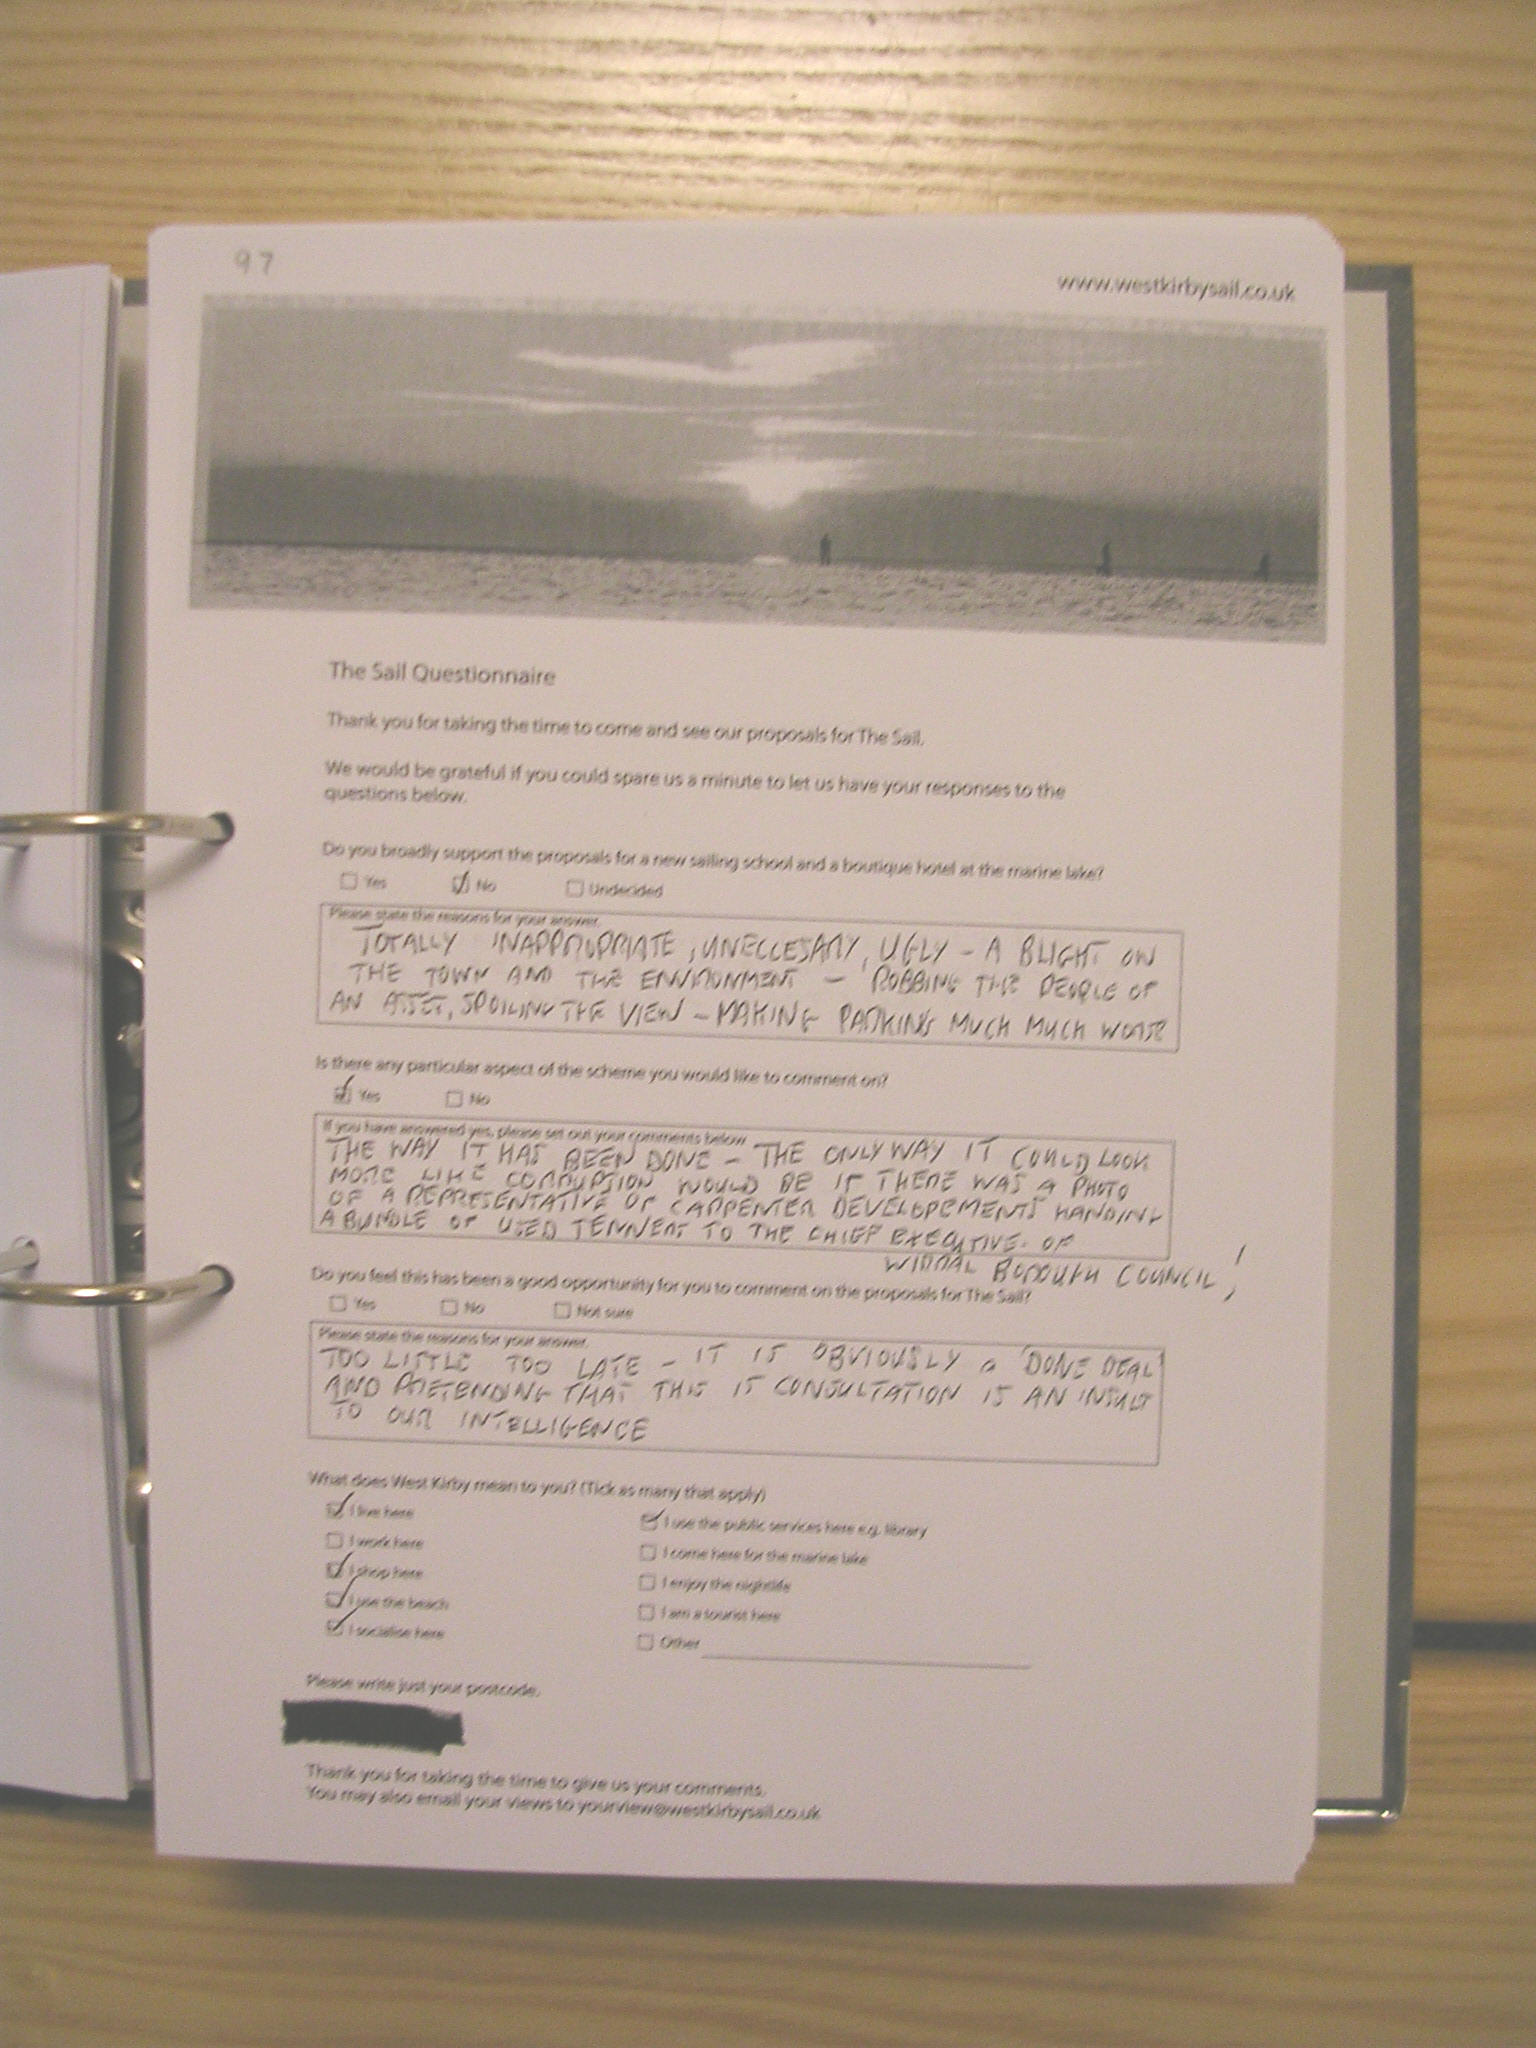 97
www.westkirbysail.co.uk
The Sail Questionnaire
Thank you for taking the time to come and see our proposals for The Sail.
We would be grateful if you could spare us a minute to let us have your responses to the
questions below.
Do you broadly support the proposals for a new sailing school and a boutique hotel at the marine lake?
Yes No Undecided
Please state the reasons for your answer.
TOTALLY INAPPROPRIATE, UNECCESARY, UGLY - A BLIGHT ON
THE TOWN AND THE ENVIRONMENT - ROBBING THE PEOPLE OF
AN ASSET, SPOILING THE VIEW - MAKING PARKING MUCH MUCH WORSE
Is there any particular aspect of the scheme you would like to comment on?
Yes No
If you have answered yes, please set out your comments below
THE WAY IT HAS BEEN DONE - THE ONLY WAY IT COULD LOOK
MORE LIKE CORRUPTION WOULD BE IF THERE WAS A PHOTO
OF A REPRESENTATIVE OF CARPENTER DEVELOPEMENTS HANDING
A BUNDLE OF USED TENNERS TO THE CHIEF EXECUTIVE OF
WIRRAL BOROUGH COUNCIL!
Do you feel this has been a good opportunity for you to comment on the proposals for The Sail?
Yes No Not sure
Please state the reasons for your answer.
TOO LITTLE TOO LATE - IT IS OBVIOUSLY a 'DONE DEAL'
AND PRETENDING THAT THIS IS CONSULTATION IS AN INSULT
TO OUR INTELLIGENCE
What does West Kirby mean to you? (Tick as many that apply)
I live here I use the public services here e.g. library
I work here I come here for the marine lake
I shop here I enjoy the nightlife
I use the beach I am a tourist here
I socialise here Other
Please write just your postcode.
Thank you for taking the time to give us your comments.
You may also email your views to yourview@westkirbysail.co.uk